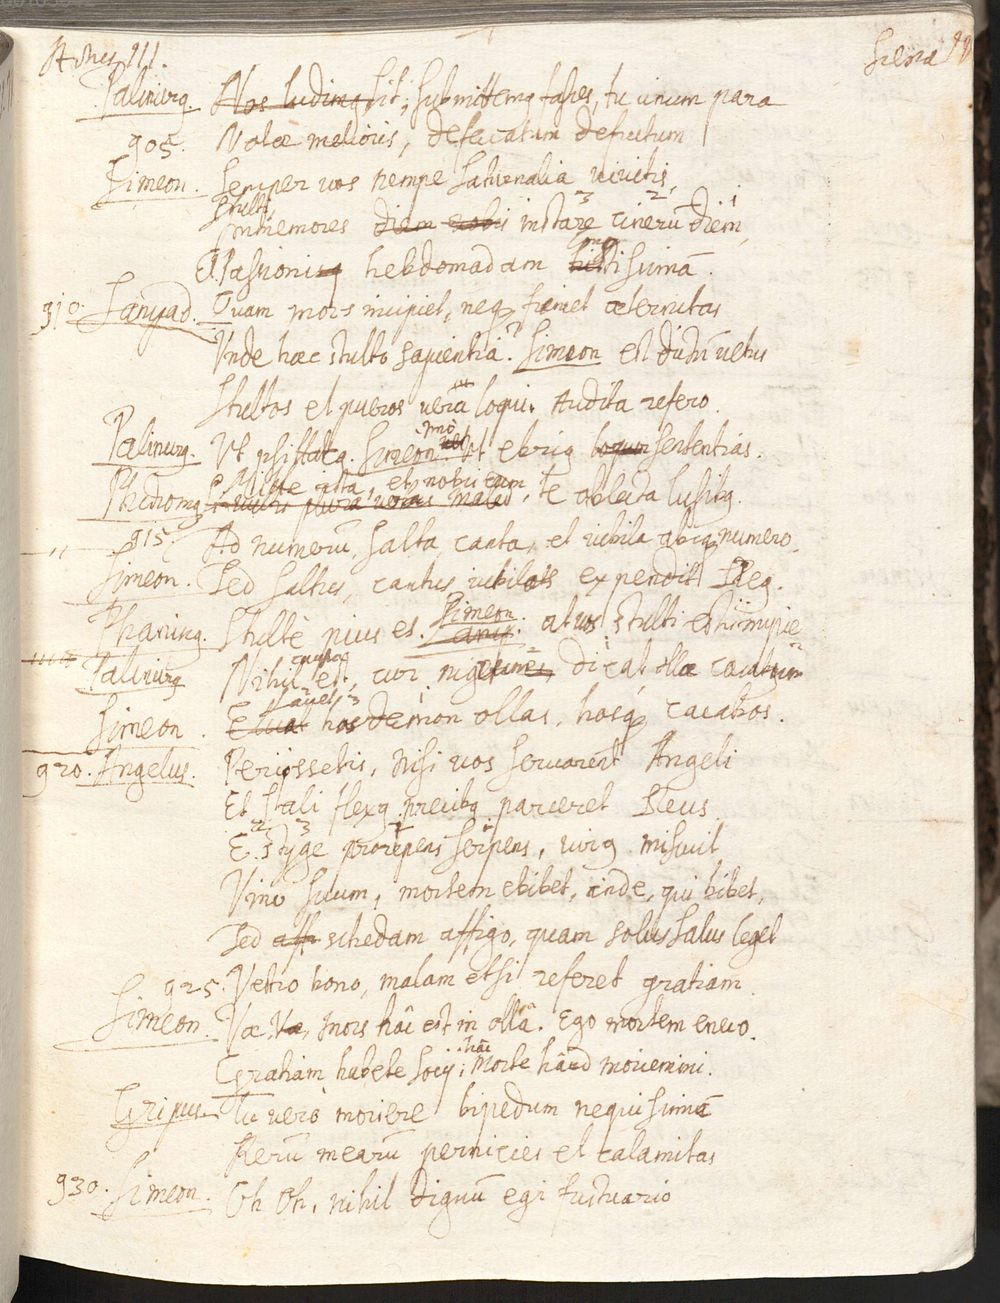 Actus III. Scena
Palinurg. Nos ludimg sit; submittemg fasces, tu unum para
905. Notae melioris, defaecatum defrutum
Simeon. Semper vos nempe Saturnalia vivitis,
Stulti
Immemores diem vobis instare 3 cinerū 2 diem 1,
Et Passionisq hebdomadam tristissimā.
910. Sanyad. Quam mors incipiet, neq finiet aeternitas
Unde haec stulto sapientia? Simeon est dictū vetus
Stultos et pueros vera loqui. Audita refero.
Palinurg. Ut psittacg. Simeon imò Ut ebrig loquor sententias.
Phaedromg Mitte ista, et nobiscum te oblecta lusibg.
915 Ad numerū, salta, canta, et iubila absq numero.
Simeon. Sed saltus, cantus iubilos expendit Deg.
Pharisg. Stultè pius es. Simeon. at vos stulti estis impie
Palinurg Nihil est, cur nigrum dicat olla cacabum
Simeon. Lavet 2 has 3 demon 1 ollas, hosq cacabos.
920. Angelus. Periissetis, nisi vos servarent Angeli
Et tali flexg precibg parceret Deus.
E 2 styge 3 prorepens serpens, virg miscuit
Vino suum, mortem ebibet, inde, qui bibet,
Sed aff schedam affigo, quam solus salus leget
925. Vestro bono, malam etsi referet gratiam
Simeon. Vae Vae, mors haec est in ollâ. Ego mortem eneco.
Gratiam habete socij; hâc Morte haūd moriemini.
Gripus. Tu verò moriere bipedum nequissimā
Rerū mearū pernicies et calamitas
930. Simeon. Oh Oh, nihil dignū egi fustuario